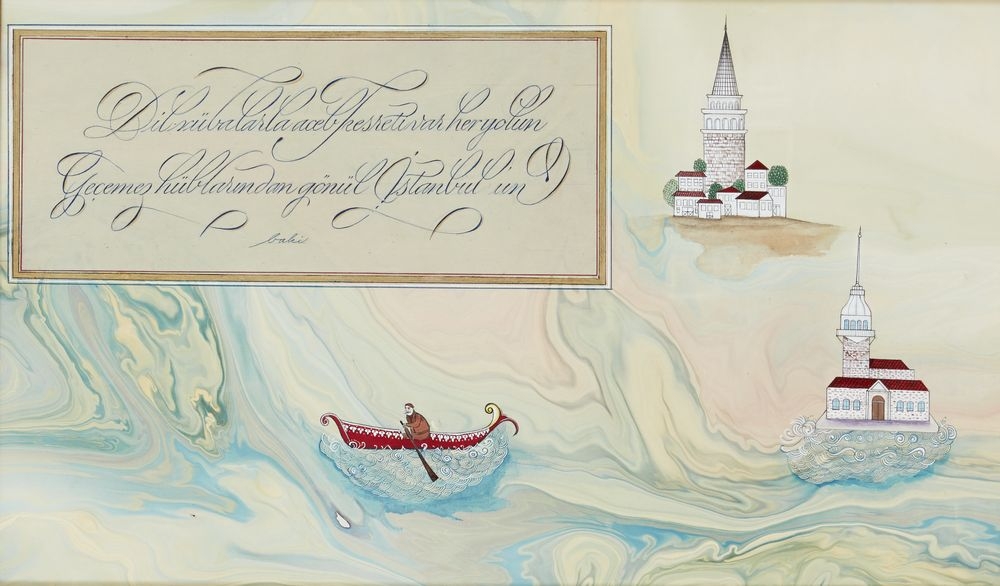 Dilrübalarla aceb kesreti var her yolun
Geçemez hüblarından gönül İstanbul'un
baki